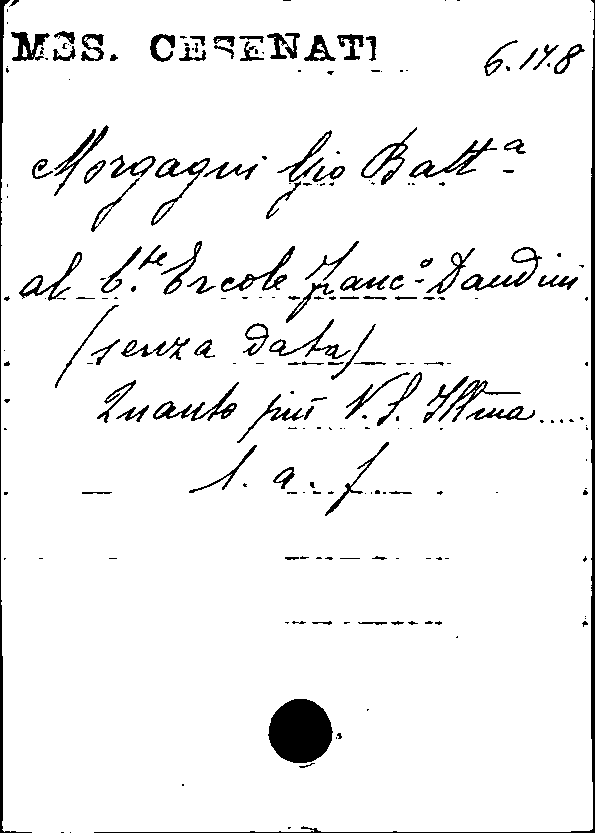 MSS. CESENATI 6.17.8
Morgagni Gio Batt.a
al C.te Ercole Franc.o Dandini
(senza data)
Quanto più V. S. Illma .....
l. a. f.